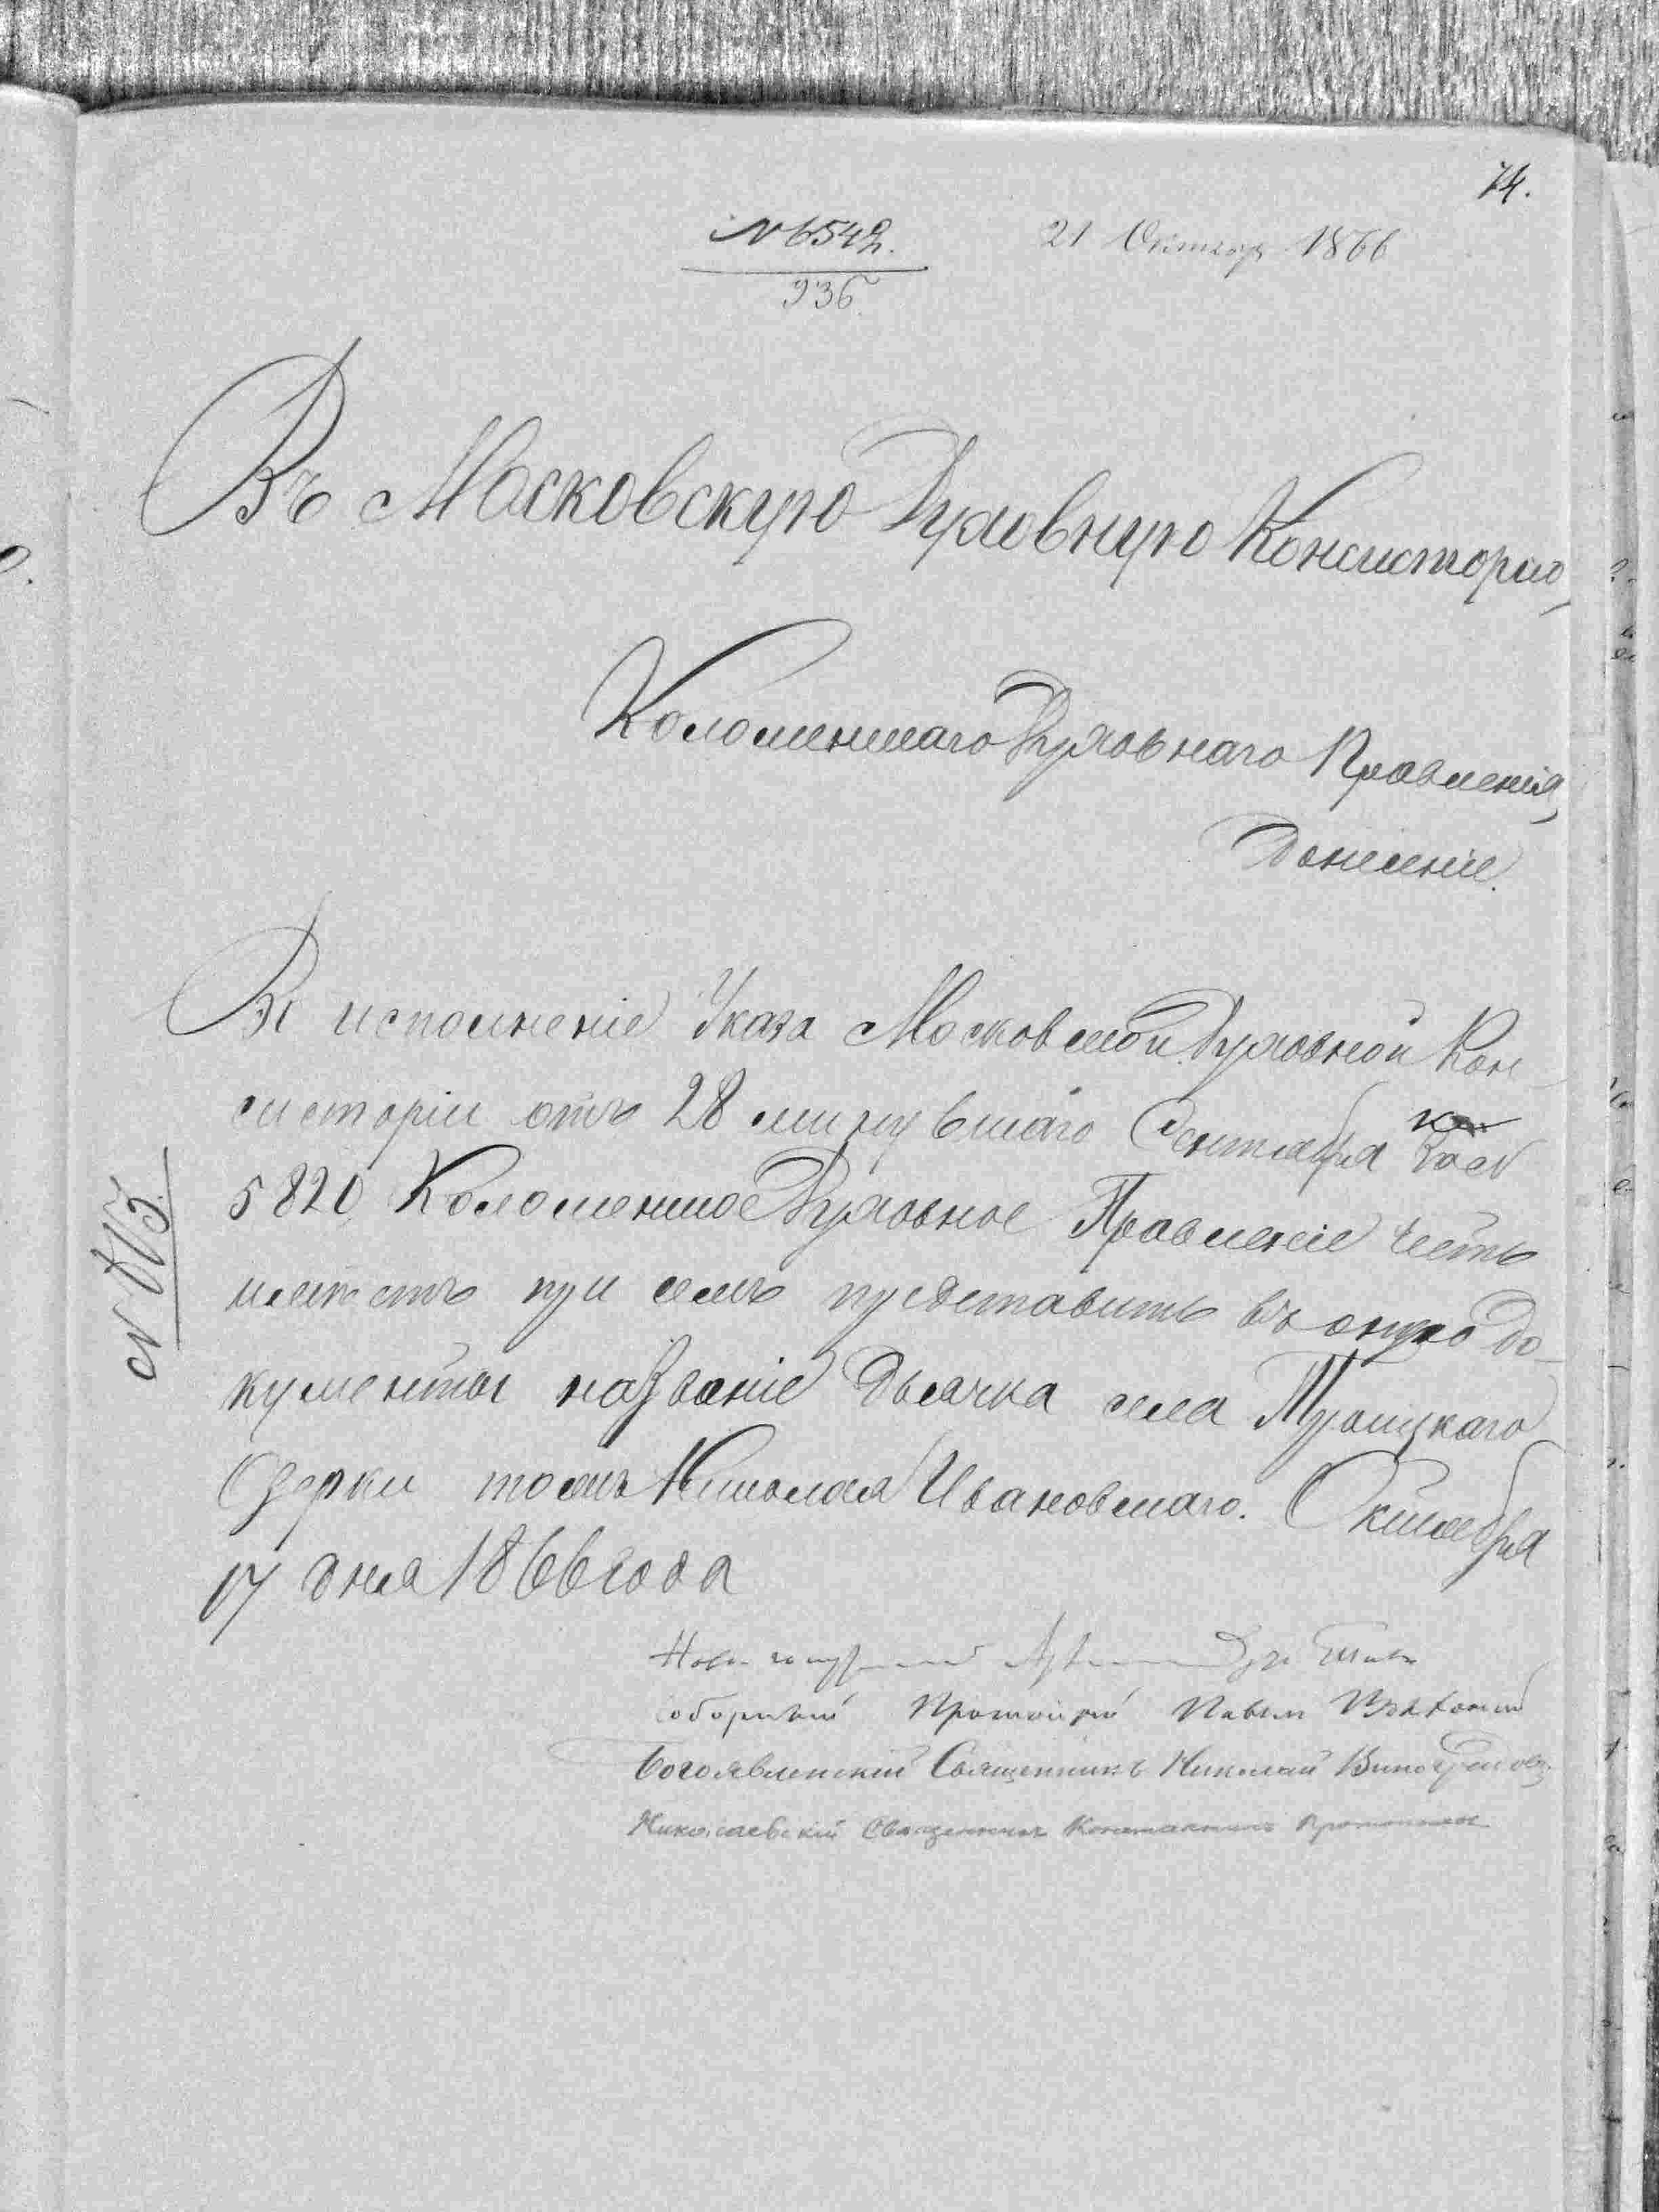 74.
№ 6542. 21 Октябр 1866
936
Въ Московскую Духовную Консисторію,
Коломенскаго Духовнаго Правленія,
Донесеніе.
Во исполненіе Указа Московской Духовной Кон-
систоріи отъ 28 минувшаго Сентября за №
5820, Коломенское Духовное Правленіе честь
имѣетъ при семъ представить въ оную до-
кументы на званіе дьячка села Троицкаго
Озерки тожъ Николая Ивановскаго. Октября
17 дня 1866 года
№
Соборный Протоіерей Павелъ
Богоявленскій Священникъ Николай Виноградовъ
Николаевскій Священникъ Константинъ